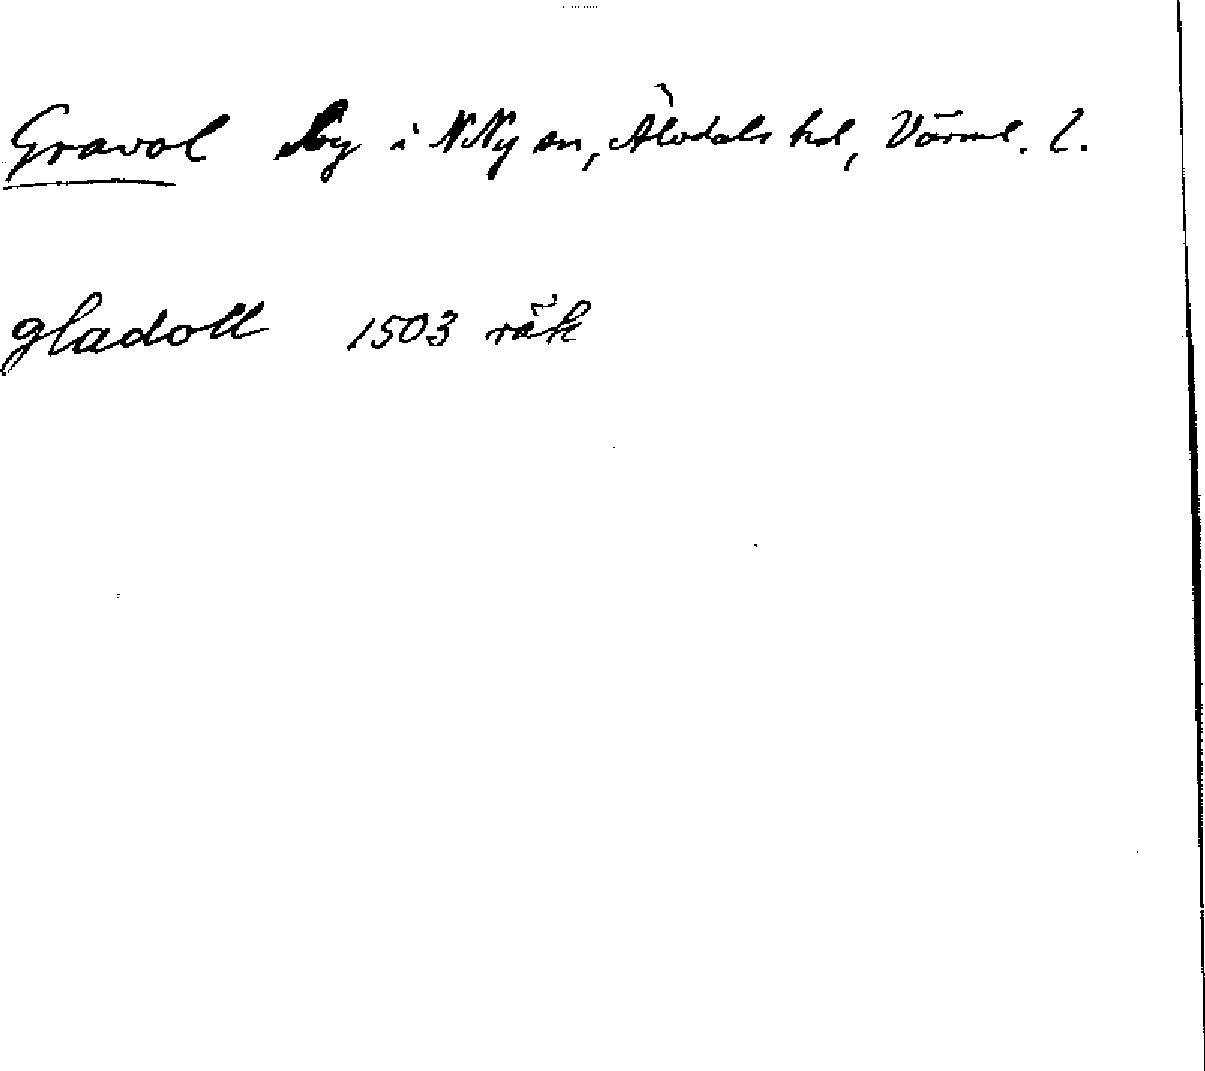 Gravol by i N Ny sn, Älvdals hd, Värml. l.
gladoll 1503 räk